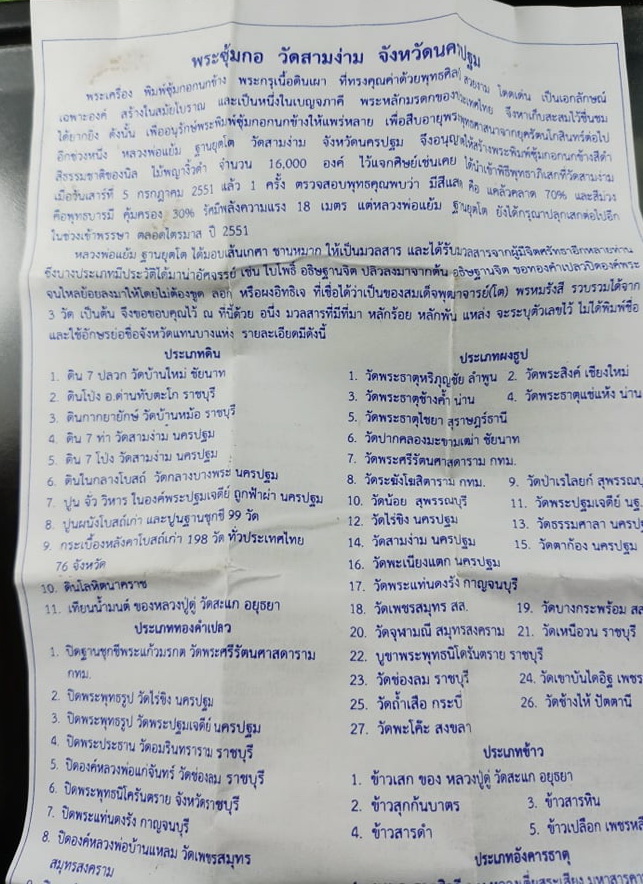 พระซุ้มกอ วัดสามง่าม จังหวัดนครปฐม
พระเครื่อง พิมพ์ซุ้มกอกนกข้าง พระกรุเนื้อดินเผา ที่ทรงคุณค่าด้วยพุทธศิลป สวยงาม โดดเด่น เป็นเอกลักษณ์
เฉพาะองค์ สร้างในสมัยโบราณ และเป็นหนึ่งในเบญจภาคี พระหลักมรดกของประเทศไทย จึงหาเก็บสะสมไว้ชื่นชม
ได้ยากยิ่ง ดังนั้น เพื่ออนุรักษ์พระพิมพ์ซุ้มกอกนกข้างให้แพร่หลาย เพื่อสืบอายุพระพุทธศาสนาจากยุครัตนโกสินทร์ต่อไป
อีกช่วงหนึ่ง หลวงพ่อแย้ม ฐานยุตโต วัดสามง่าม จังหวัดนครปฐม จึงอนุญาตให้สร้างพระพิมพ์ซุ้มกอกนกข้างสีดำ
สีธรรมชาติของนิล ไม้พญางิ้วดำ จำนวน 16,000 องค์ ไว้แจกศิษย์เช่นเคย ได้นำเข้าพิธีพุทธาภิเสกที่วัดสามง่าม
เมื่อวันเสาร์ที่ 5 กรกฎาคม 2551 แล้ว 1 ครั้ง ตรวจสอบพุทธคุณพบว่า มีสีแสด คือ แคล้วคลาด 70% และสีม่วง
คือพุทธบารมี คุ้มครอง 30% รัศมีพลังความแรง 18 เมตร แต่หลวงพ่อแย้ม ฐานยุตโต ยังได้กรุณาปลุกเสกต่อไปอีก
ในช่วงเข้าพรรษา ตลอดไตรมาส ปี 2551
หลวงพ่อแย้ม ฐานยุตโต ได้มอบเส้นเกศา ชานหมาก ให้เป็นมวลสาร และได้รับมวลสารจากผู้มีจิตศรัทธาอีกหลายท่าน
ซึ่งบางประเภทมีประวัติได้มาน่าอัศจรรย์ เช่น ใบโพธิ์ อธิษฐานจิต ปลิวลงมาจากต้น อธิษฐานจิต ขอทองคำเปลวปิดองค์พระ
จนไหลย้อยลงมาให้โดยไม่ต้องขูด ลอก หรือผงอิทธิเจ ที่เชื่อได้ว่าเป็นของสมเด็จพุฒาจารย์(โต) พรหมรังสี รวบรวมได้จาก
3 วัด เป็นต้น จึงขอขอบคุณไว้ ณ ที่นี้ด้วย อนึ่ง มวลสารที่มีที่มา หลักร้อย หลักพัน แหล่ง จะระบุตัวเลขไว้ ไม่ได้พิมพ์ชื่อ
และใช้อักษรย่อชื่อจังหวัดแทนบางแห่ง รายละเอียดมีดังนี้
ประเภทดิน
1. ดิน 7 ปลวก วัดบ้านใหม่ ชัยนาท
2. ดินโป่ง อ.ด่านทับตะโก ราชบุรี
3. ดินกากยายักษ์ วัดบ้านหม้อ ราชบุรี
4. ดิน 7 ท่า วัดสามง่าม นครปฐม
5. ดิน 7 โป่ง วัดสามง่าม นครปฐม
6. ดินในกลางโบสถ์ วัดกลางบางพระ นครปฐม
7. ปูน จั่ว วิหาร ในองค์พระปฐมเจดีย์ ถูกฟ้าผ่า นครปฐม
8. ปูนผนังโบสถ์เก่า และปูนฐานชุกชี 99 วัด
9. กระเบื้องหลังคาโบสถ์เก่า 198 วัด ทั่วประเทศไทย
76 จังหวัด
10. ดินโลหิตนาคราช
11. เทียนน้ำมนต์ ของหลวงปู่ดู่ วัดสะแก อยุธยา
ประเภททองคำเปลว
1. ปิดฐานชุกชีพระแก้วมรกต วัดพระศรีรัตนศาสดาราม
กทม.
2. ปิดพระพุทธรูป วัดไร่ขิง นครปฐม
3. ปิดพระพุทธรูป วัดพระปฐมเจดีย์ นครปฐม
4. ปิดพระประธาน วัดอมรินทราราม ราชบุรี
5. ปิดองค์หลวงพ่อแก่นจันทร์ วัดช่องลม ราชบุรี
6. ปิดพระพุทธนิโครันตราย จังหวัดราชบุรี
7. ปิดพระแท่นดงรัง กาญจนบุรี
8. ปิดองค์หลวงพ่อบ้านแหลม วัดเพชรสมุทร
สมุทรสงคราม
ประเภทผงธูป
1. วัดพระธาตุหริภุญชัย ลำพูน 2. วัดพระสิงค์ เชียงใหม่
3. วัดพระธาตุช้างค้ำ น่าน 4. วัดพระธาตุแช่แห้ง น่าน
5. วัดพระธาตุไชยา สุราษฎร์ธานี
6. วัดปากคลองมะขามเฒ่า ชัยนาท
7. วัดพระศรีรัตนศาสดาราม กทม.
8. วัดระฆังโฆสิตาราม กทม. 9. วัดป่าเรไลยก์ สุพรรณบุ
10. วัดน้อย สุพรรณบุรี 11. วัดพระปฐมเจดีย์ นฐ.
12. วัดไร่ขิง นครปฐม 13. วัดธรรมศาลา นครปฐ
14. วัดสามง่าม นครปฐม 15. วัดตาก้อง นครปฐม
16. วัดพะเนียงแตก นครปฐม
17. วัดพระแท่นดงรัง กาญจนบุรี
18. วัดเพชรสมุทร สส. 19. วัดบางกระพร้อม สส
20. วัดจุฬามณี สมุทรสงคราม 21. วัดเหนือวน ราชบุรี
22. บูชาพระพุทธนิโครันตราย ราชบุรี
23. วัดช่องลม ราชบุรี 24. วัดเขาบันไดอิฐ เพชร
25. วัดถ้ำเสือ กระบี่ 26. วัดช้างให้ ปัตตานี
27. วัดพะโค๊ะ สงขลา
ประเภทข้าว
1. ข้าวเสก ของ หลวงปู่ดู่ วัดสะแก อยุธยา
2. ข้าวสุกก้นบาตร 3. ข้าวสารหิน
4. ข้าวสารดำ 5. ข้าวเปลือก เพชรหลี
ประเภทอังคารธาตุ